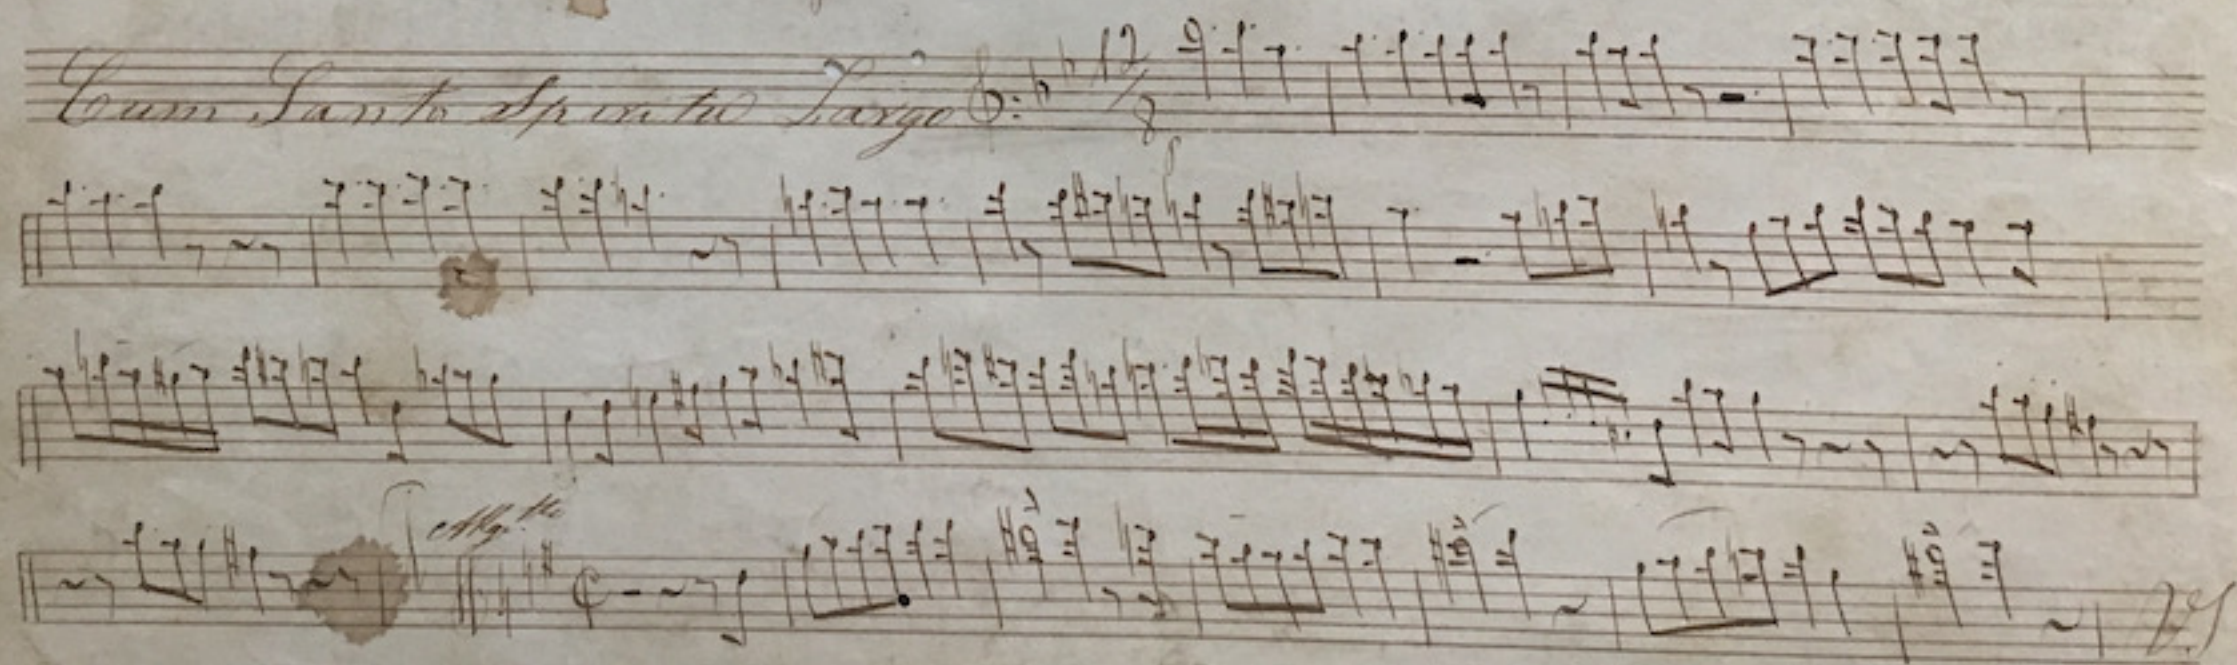 Cum Santo Spiritu Largo 12/8
Allg.tto
V.S